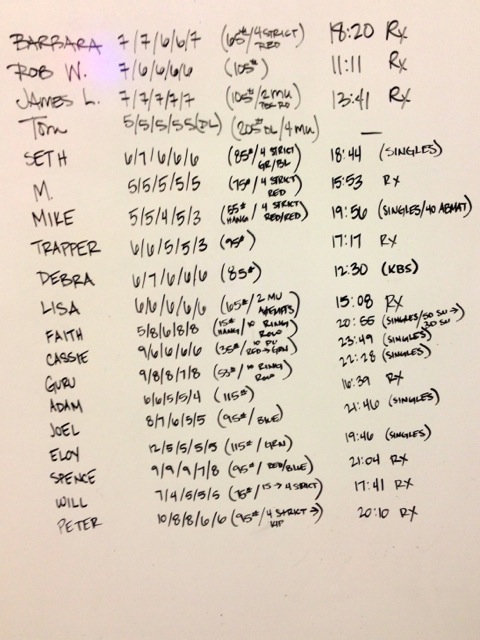 BARBARA 7/7/6/6/7 (65#/4 STRICT RED) 18:20 Rx
ROB W. 7/6/6/6/6 (105#) 11:11 Rx
JAMES L. 7/7/7/7/7 (105#/2 MU) 13:41 Rx
Tom 5/5/5/5S(DL) (205# DL/4 MU) —
SETH 6/7/6/6/6 (85#/4 STRICT GR/BL) 18:44 (SINGLES)
M. 5/5/5/5/5 (75#/4 STRICT RED) 15:53 Rx
MIKE 5/5/4/5/3 (55# HANG/4 STRICT RED/RED) 19:56 (SINGLES/40 ABMAT)
TRAPPER 6/6/5/5/3 (95#) 17:17 Rx
DEBRA 6/7/6/6/6 (85#) 12:30 (KBS)
LISA 6/6/6/6/6 (65#/2 MU ATTEMPTS) 15:08 Rx
FAITH 5/8/6/8/8 (15# HANG/10 RING ROW) 20:55 (SINGLES/50 SU → 30 SU)
CASSIE 9/6/6/6/6 (35#/10 PU RED → GRN) 23:49 (SINGLES)
GURU 9/8/8/7/8 (53#/10 RING ROW) 22:28 (SINGLES)
ADAM 6/6/5/5/4 (115#) 16:39 Rx
JOEL 8/7/6/5/5 (95#/BLUE) 21:46 (SINGLES)
ELOY 12/5/5/5/5 (115#/GRN) 19:46 (SINGLES)
SPENCE 9/9/9/7/8 (95#/RED/BLUE) 21:04 Rx
WILL 7/4/5/5/5 (75#/15 → 4 STRICT) 17:41 Rx
PETER 10/8/8/6/6 (95#/4 STRICT → KIP) 20:10 Rx